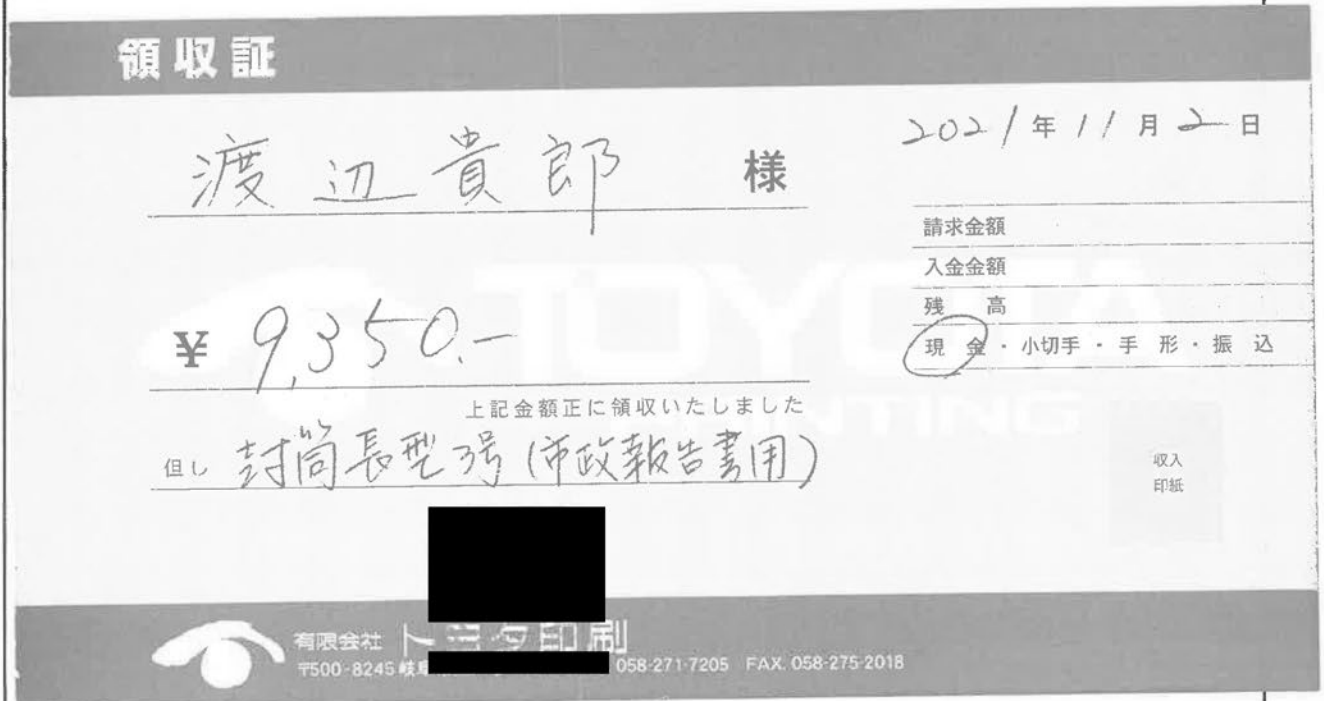 領収証
2021年11月2日
渡辺貴郎 様
請求金額
入金金額
残 高
現 金・小切手・手 形・振 込
¥ 9,350.-
上記金額正に領収いたしました
但し 封筒長型3号(市政報告書用)
収入
印紙
TOYOTA
PRINTING
有限会社 トヨタ印刷
〒500-8245 岐阜 058-271-7205 FAX. 058-275-2018